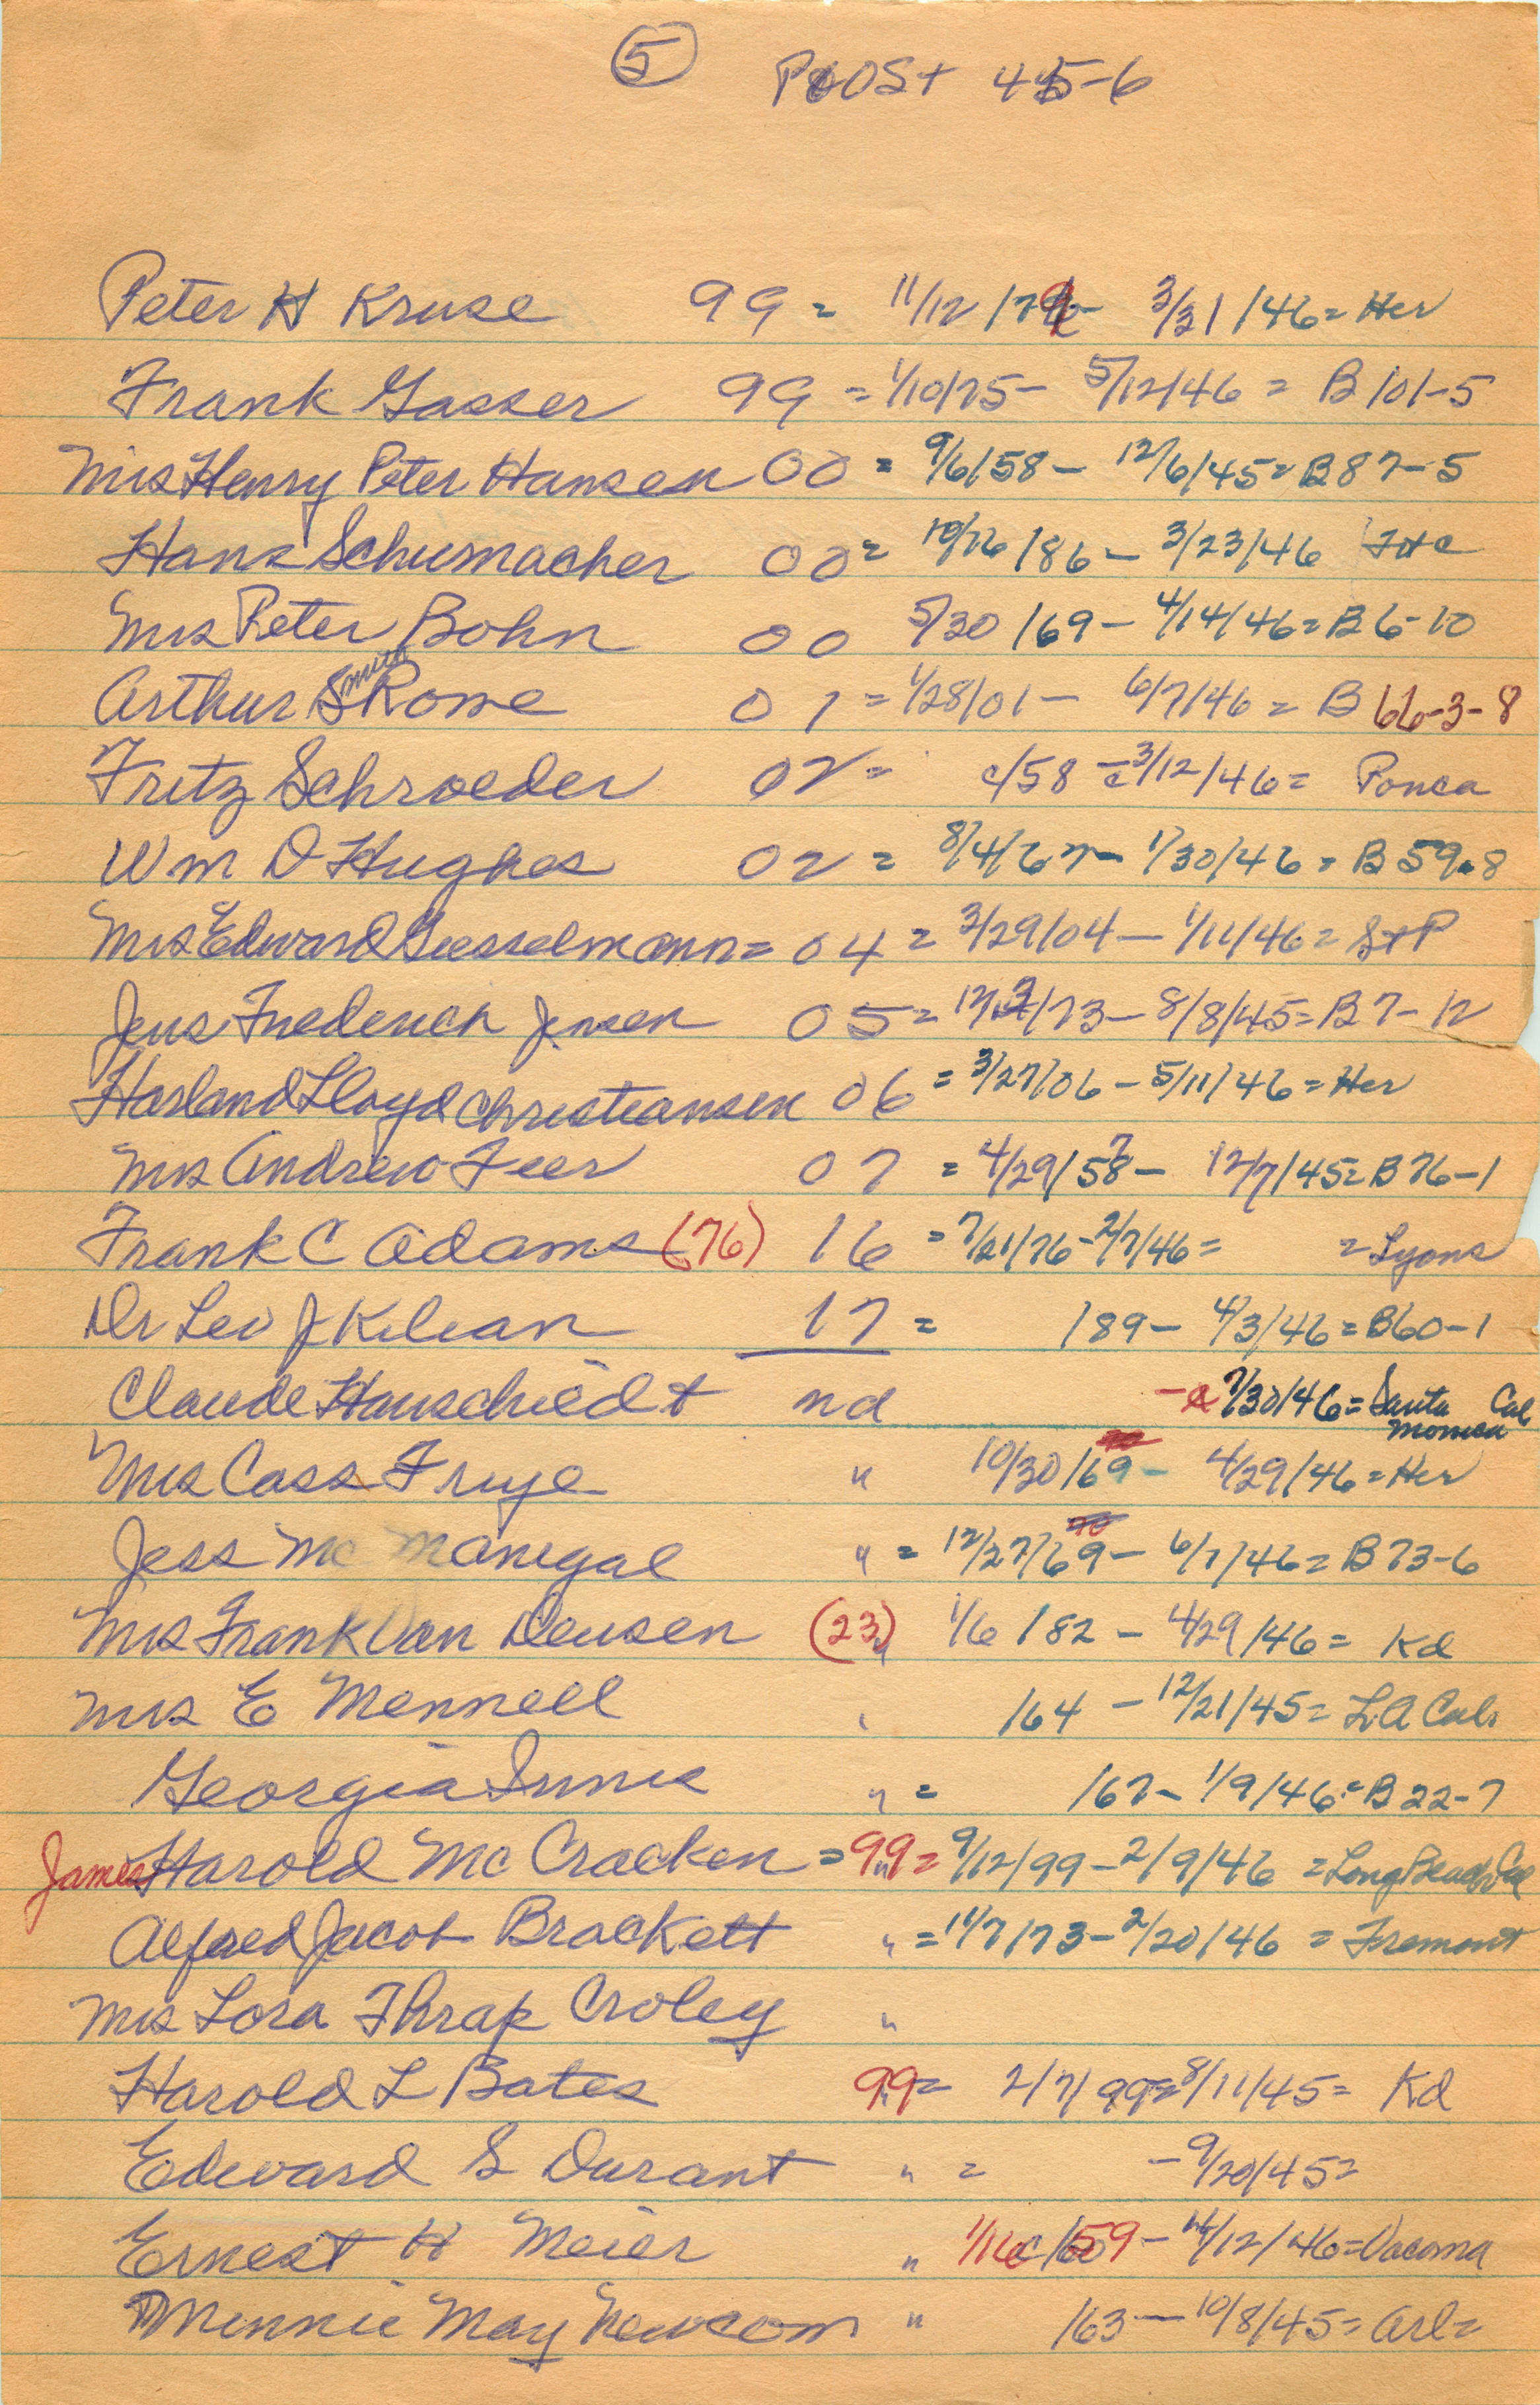 5 POST 45-6
Peter H Kruse 99 = 11/12/79 - 3/31/46 = Her
Frank Gasser 99 = 1/10/75 - 5/12/46 = B 101-5
Mrs Henry Peter Hansen 00 = 9/6/58 - 12/6/45 = B 87-5
Hans Schumacher 00 = 10/16/86 - 3/23/46
Mrs Peter Bohn 00 5/30/69 - 4/14/46 = B 6-10
Arthur Smith Rowe 01 = 1/28/01 - 6/7/46 = B 66-3-8
Fritz Schroeder 02 = c/58 - c 3/12/46 = Ponca
Wm D Hughes 02 = 8/4/67 - 1/30/46 = B 59-8
Mrs Edward Giesselmann = 04 = 3/29/04 - 1/11/46 = StP
Jens Frederich Jensen 05 = 12/2/73 - 8/8/45 = B 7-12
Harland Lloyd Christiansen 06 = 3/27/06 - 5/11/46 = Her
Mrs Andrew Feer 07 = 4/29/57 - 12/7/45 = B 76-1
Frank C Adams (76) 16 = 7/21/76 - 2/7/46 = = Lyons
Dr Leo J Kilian 17 = /89 - 4/3/46 = B60-1
Claude Hanschiedt nd - 7/30/46 = Santa Monica Cal
Mrs Cass Frye " 10/30/69 - 4/29/46 = Her
Jess McManigal " = 12/27/69 - 6/7/46 = B 73-6
Mrs Frank Van Deusen (23) " 1/6/82 - 4/29/46 = Kd
Mrs E Mennell " /64 - 12/21/45 = LA Cal.
Georgia Innis " = /67 - 1/9/46 = B 22-7
James Harold McCracken = 99 = 9/12/99 - 2/9/46 = Long Beach Cal
Alfred Jacob Brackett " = 11/7/73 - 2/20/46 = Fremont
Mrs Lora Thrap Croley "
Harold L Bates 99 = 2/7/99 = 8/11/45 = Kd
Edward S Durant " = - 9/20/45 =
Ernest H Meier " 1/16/59 - /12/46 = Vacoma
Minnie May Newcom " /63 - 10/8/45 = Arl =